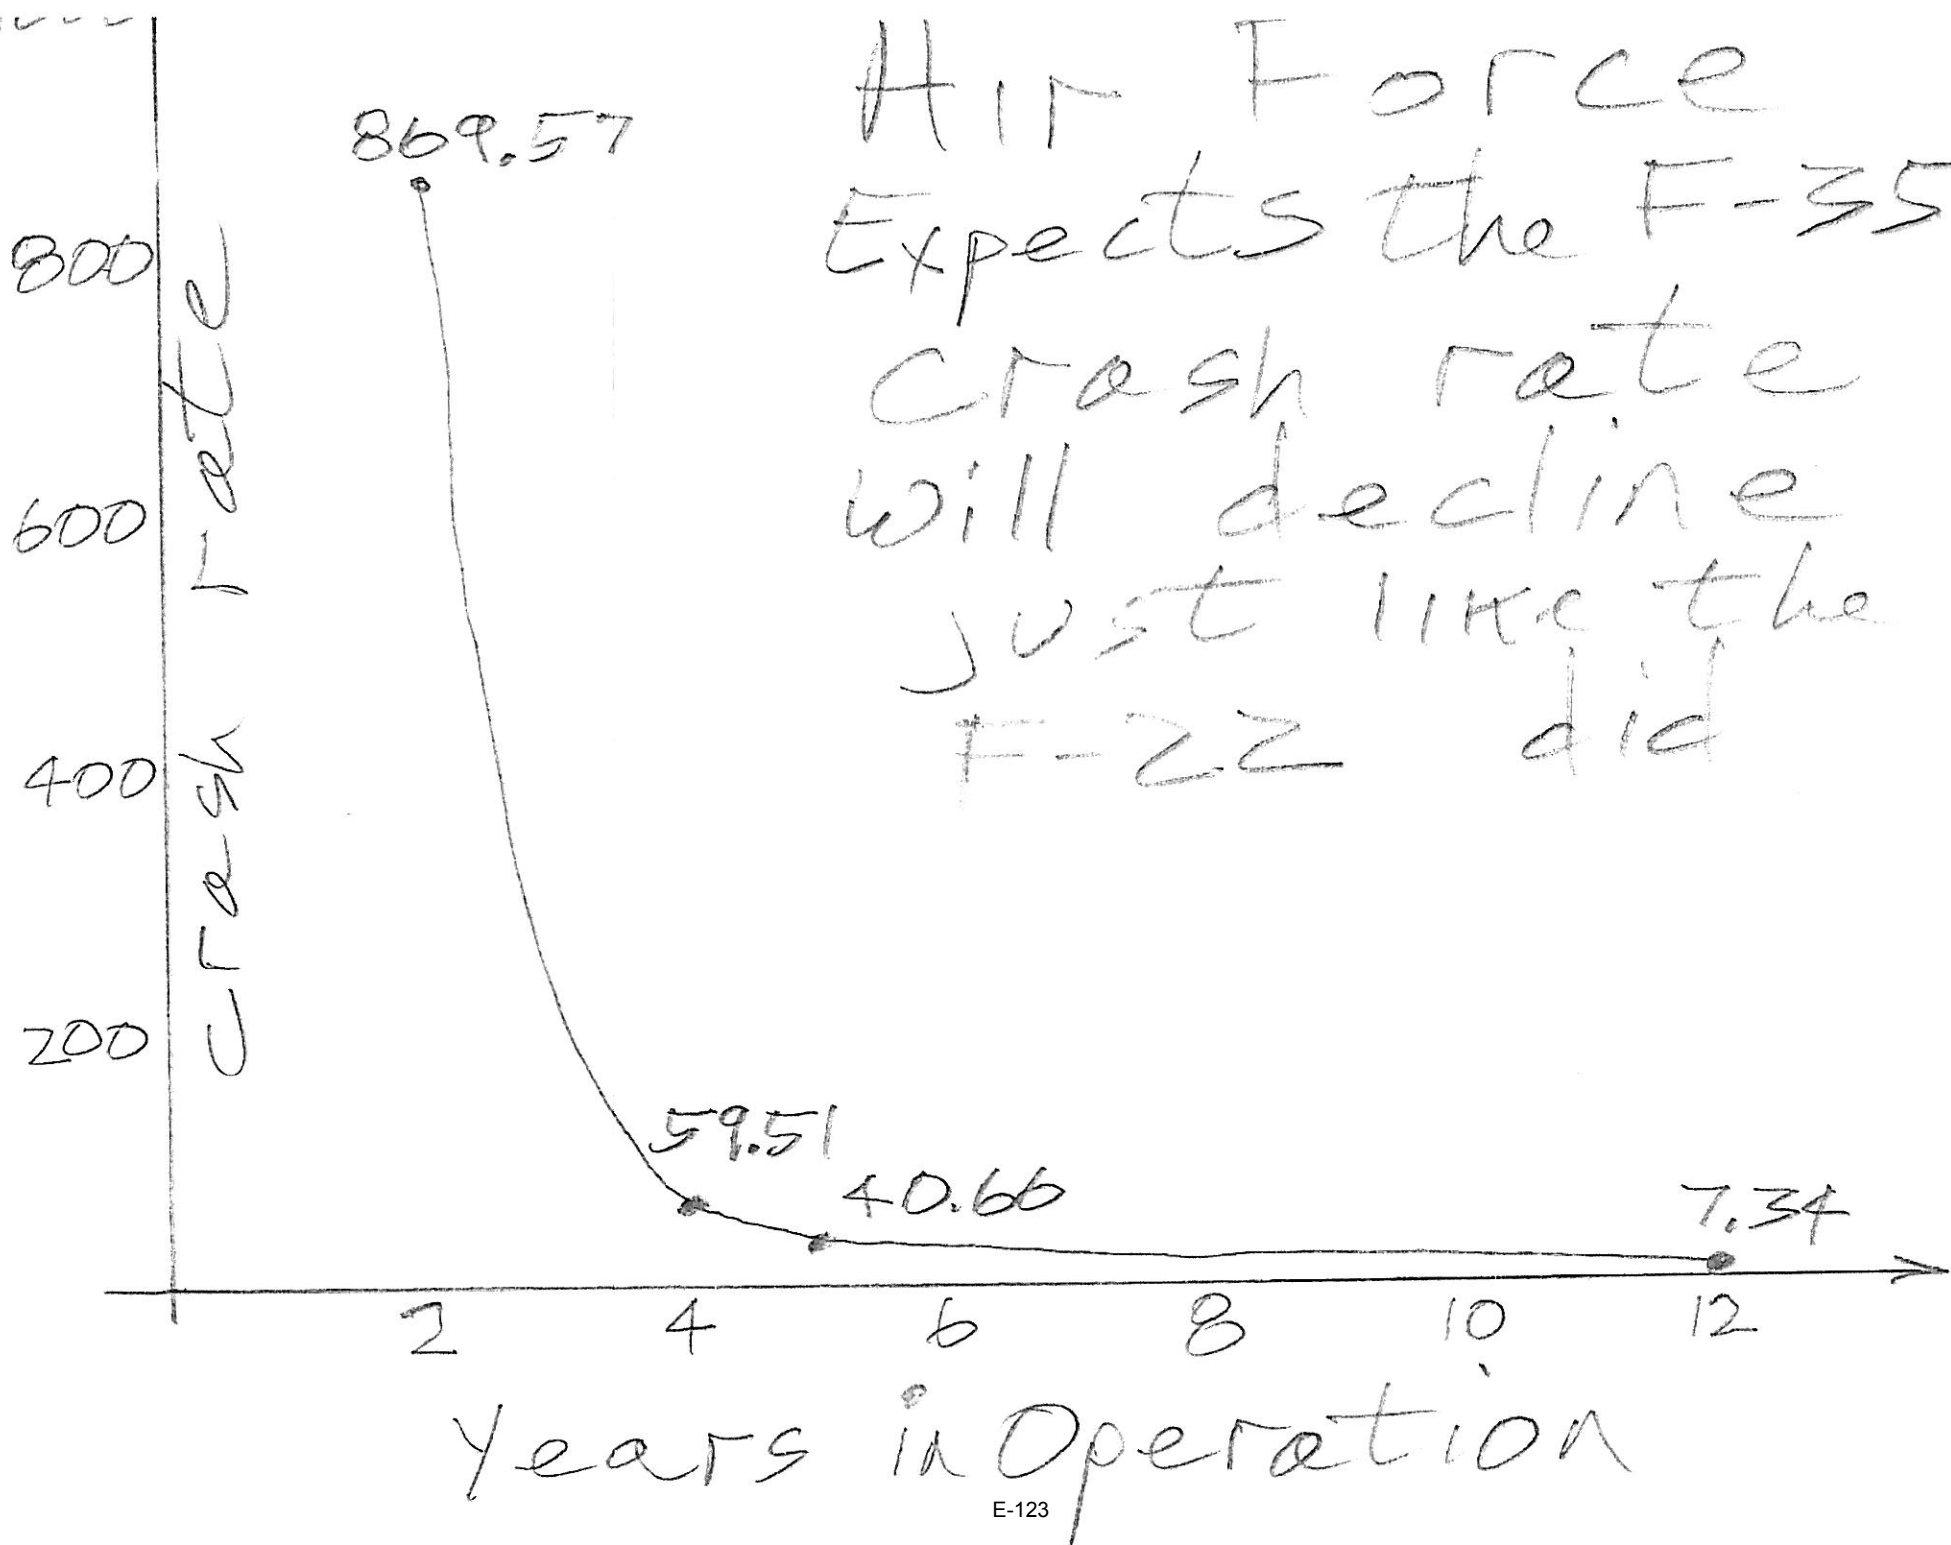 869.57
Air Force
Expects the F-35
crash rate
will decline
just like the
F-22 did
800
600
400
200
crash rate
59.51
40.66
7.34
2 4 6 8 10 12
Years in Operation
E-123